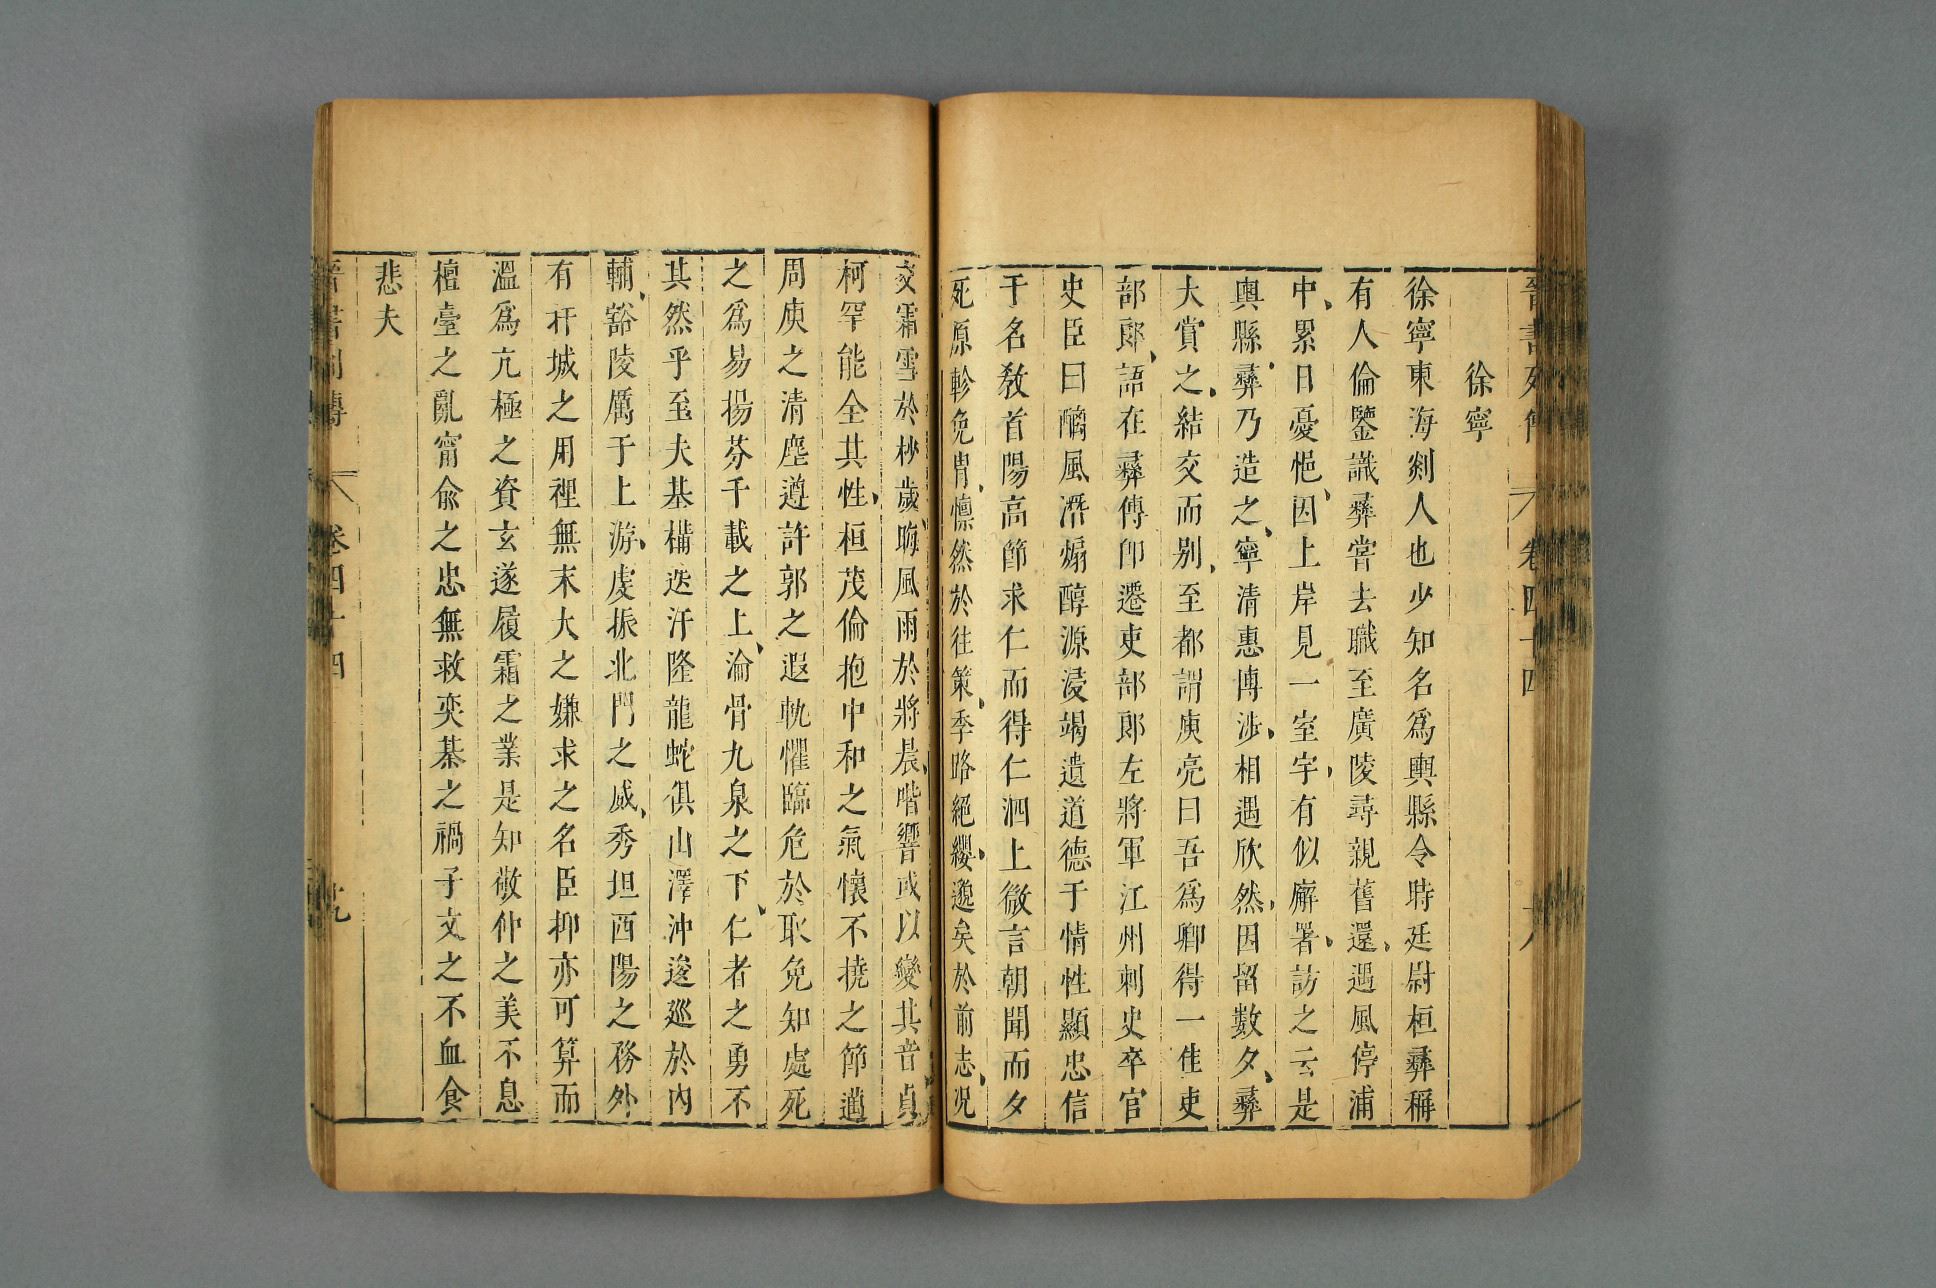 晉書列傳 卷四十四 十八
徐寧
徐寧東海剡人也少知名爲輿縣令時廷尉桓彝稱
有人倫鑒識彝嘗去職至廣陵尋親舊還遇風停浦
中累日憂悒因上岸見一室宇有似廨署訪之云是
輿縣彝乃造之寧清惠博涉相遇欣然因留數夕彝
大賞之結交而別至都謂庾亮曰吾爲卿得一佳吏
部郞語在彝傳卽遷吏部郞左將軍江州刺史卒官
史臣曰醨風潛煽醇源浸竭遺道德于情性顯忠信
于名敎首陽高節求仁而得仁泗上微言朝聞而夕
死原軫免冑懍然於往策季路絕纓邈矣於前志况
交霜雪於杪歲晦風雨於將晨喈響或以變其音貞
柯罕能全其性桓茂倫抱中和之氣懷不撓之節邁
周庾之清塵遵許郭之遐軌懼臨危於取免知處死
之爲易揚芬千載之上淪骨九泉之下仁者之勇不
其然乎至夫基構迭汙隆龍蛇俱山澤沖逡廵於內
輔豁陵厲于上游虔振北門之威秀坦西陽之務外
有扞城之用裡無末大之嫌求之名臣抑亦可算而
溫爲亢極之資玄遂履霜之業是知敬仲之美不息
檀臺之亂甯俞之忠無救奕棊之禍子文之不血食
悲夫
晉書列傳 卷四十四 十九